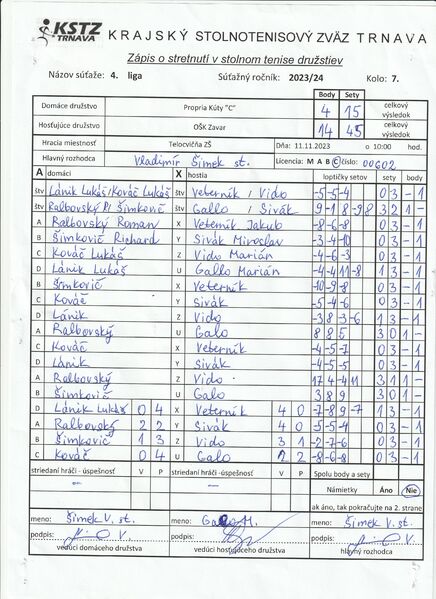 KSTZ TRNAVA KRAJSKÝ STOLNOTENISOVÝ ZVÄZ TRNAVA
Zápis o stretnutí v stolnom tenise družstiev
Názov súťaže: 4. liga Súťažný ročník: 2023/24 Kolo: 7.
Body Sety
Domáce družstvo Propria Kúty "C" 4 15 celkový výsledok
Hosťujúce družstvo OŠK Zavar 14 45 celkový výsledok
Hracia miestnosť Telocvičňa ZŠ Dňa: 11.11.2023 o 10:00 hod.
Hlavný rozhodca Vladimír Šimek st. Licencia: M A B C číslo: 00602
A domáci X hostia loptičky setov sety body
štv Lánik Lukáš/Kováč Lukáš štv Veterník / Vido -5-5-4 0 3 -1
štv Ralbovský R/ Šimkovič štv Gallo / Sivák 9-1 8-9 8 3 2 1 -
A Ralbovský Roman X Veterník Jakub -8-6-8 0 3 -1
B Šimkovič Richard Y Sivák Miroslav -3-4-10 0 3 -1
C Kováč Lukáš Z Vido Marián -4-6-3 0 3 -1
D Lánik Lukáš U Gallo Marián -4-4 11-8 1 3 -1
B Šimkovič X Veterník -10-9-8 0 3 -1
C Kováč Y Sivák -5-4-6 0 3 -1
D Lánik Z Vido -3 8-3-6 1 3 -1
A Ralbovský U Galo 8 8 5 3 0 1 -
C Kováč X Veterník -4-5-7 0 3 -1
D Lánik Y Sivák -4-5-5 0 3 -1
A Ralbovský Z Vido 17 4-4 11 3 1 1 -
B Šimkovič U Galo 3 8 9 3 0 1 -
D Lánik Lukáš 0 4 X Veterník 4 0 -7-8 9-7 1 3 -1
A Ralbovský 2 2 Y Sivák 4 0 -5-5-4 0 3 -1
B Šimkovič 1 3 Z Vido 3 1 -2-7-6 0 3 -1
C Kováč 0 4 U Galo 2 2 -8-6-8 0 3 -1
striedaní hráči - úspešnosť V P striedaní hráči -úspešnosť V P Spolu body a sety
Námietky Áno Nie
ak áno, tak pokračujte na 2. strane
meno: Šimek V. st. meno: Galo M. meno: Šimek V. st.
podpis: podpis: podpis:
vedúci domáceho družstva vedúci hosťujúceho družstva hlavný rozhodca